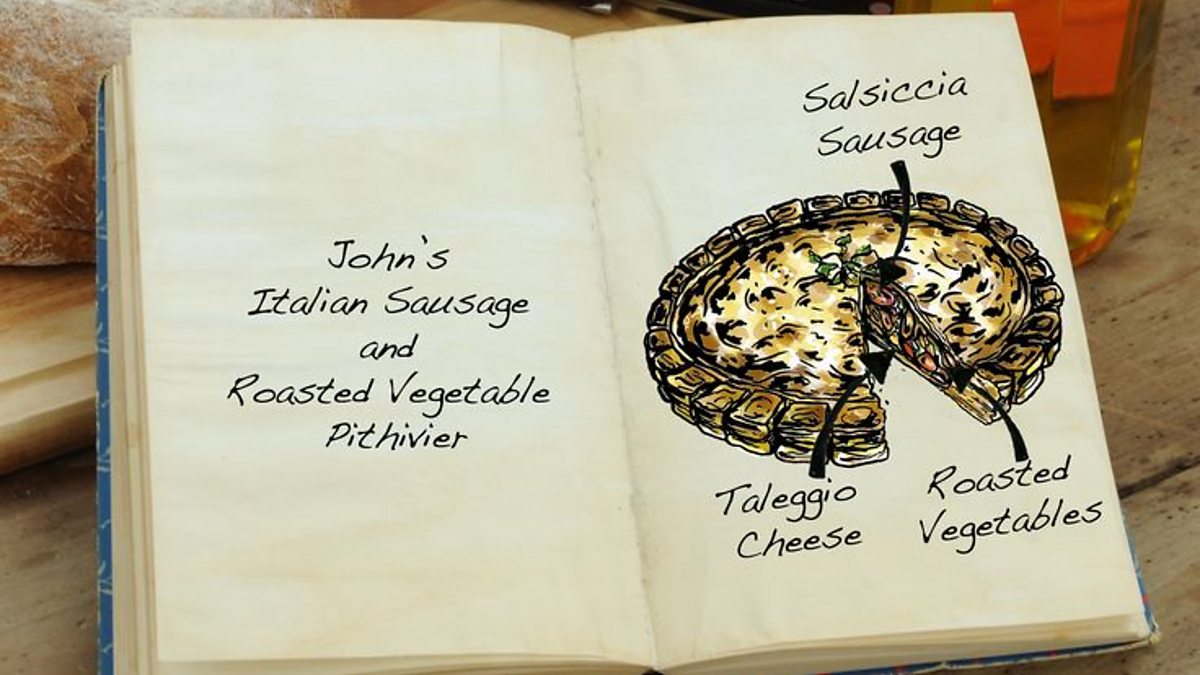 John's
Italian Sausage
and
Roasted Vegetable
Pithivier
Salsiccia
Sausage
Taleggio
Cheese
Roasted
Vegetables